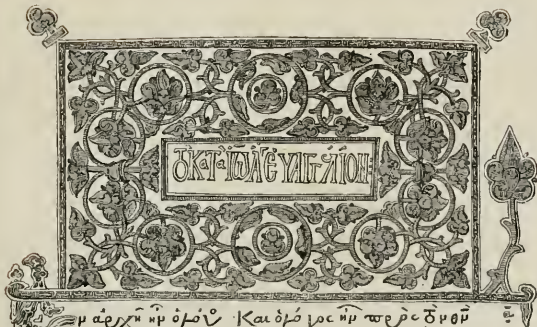 ΤΟ ΚΑΤΑ ΙΩΑ ΕΥΑΓΓΛΙΟΝ:
Ἐν ἀρχῆ ἦν ὁ λόγος · Καὶ ὁ λόγος ἦν πρὸς τὸν θν